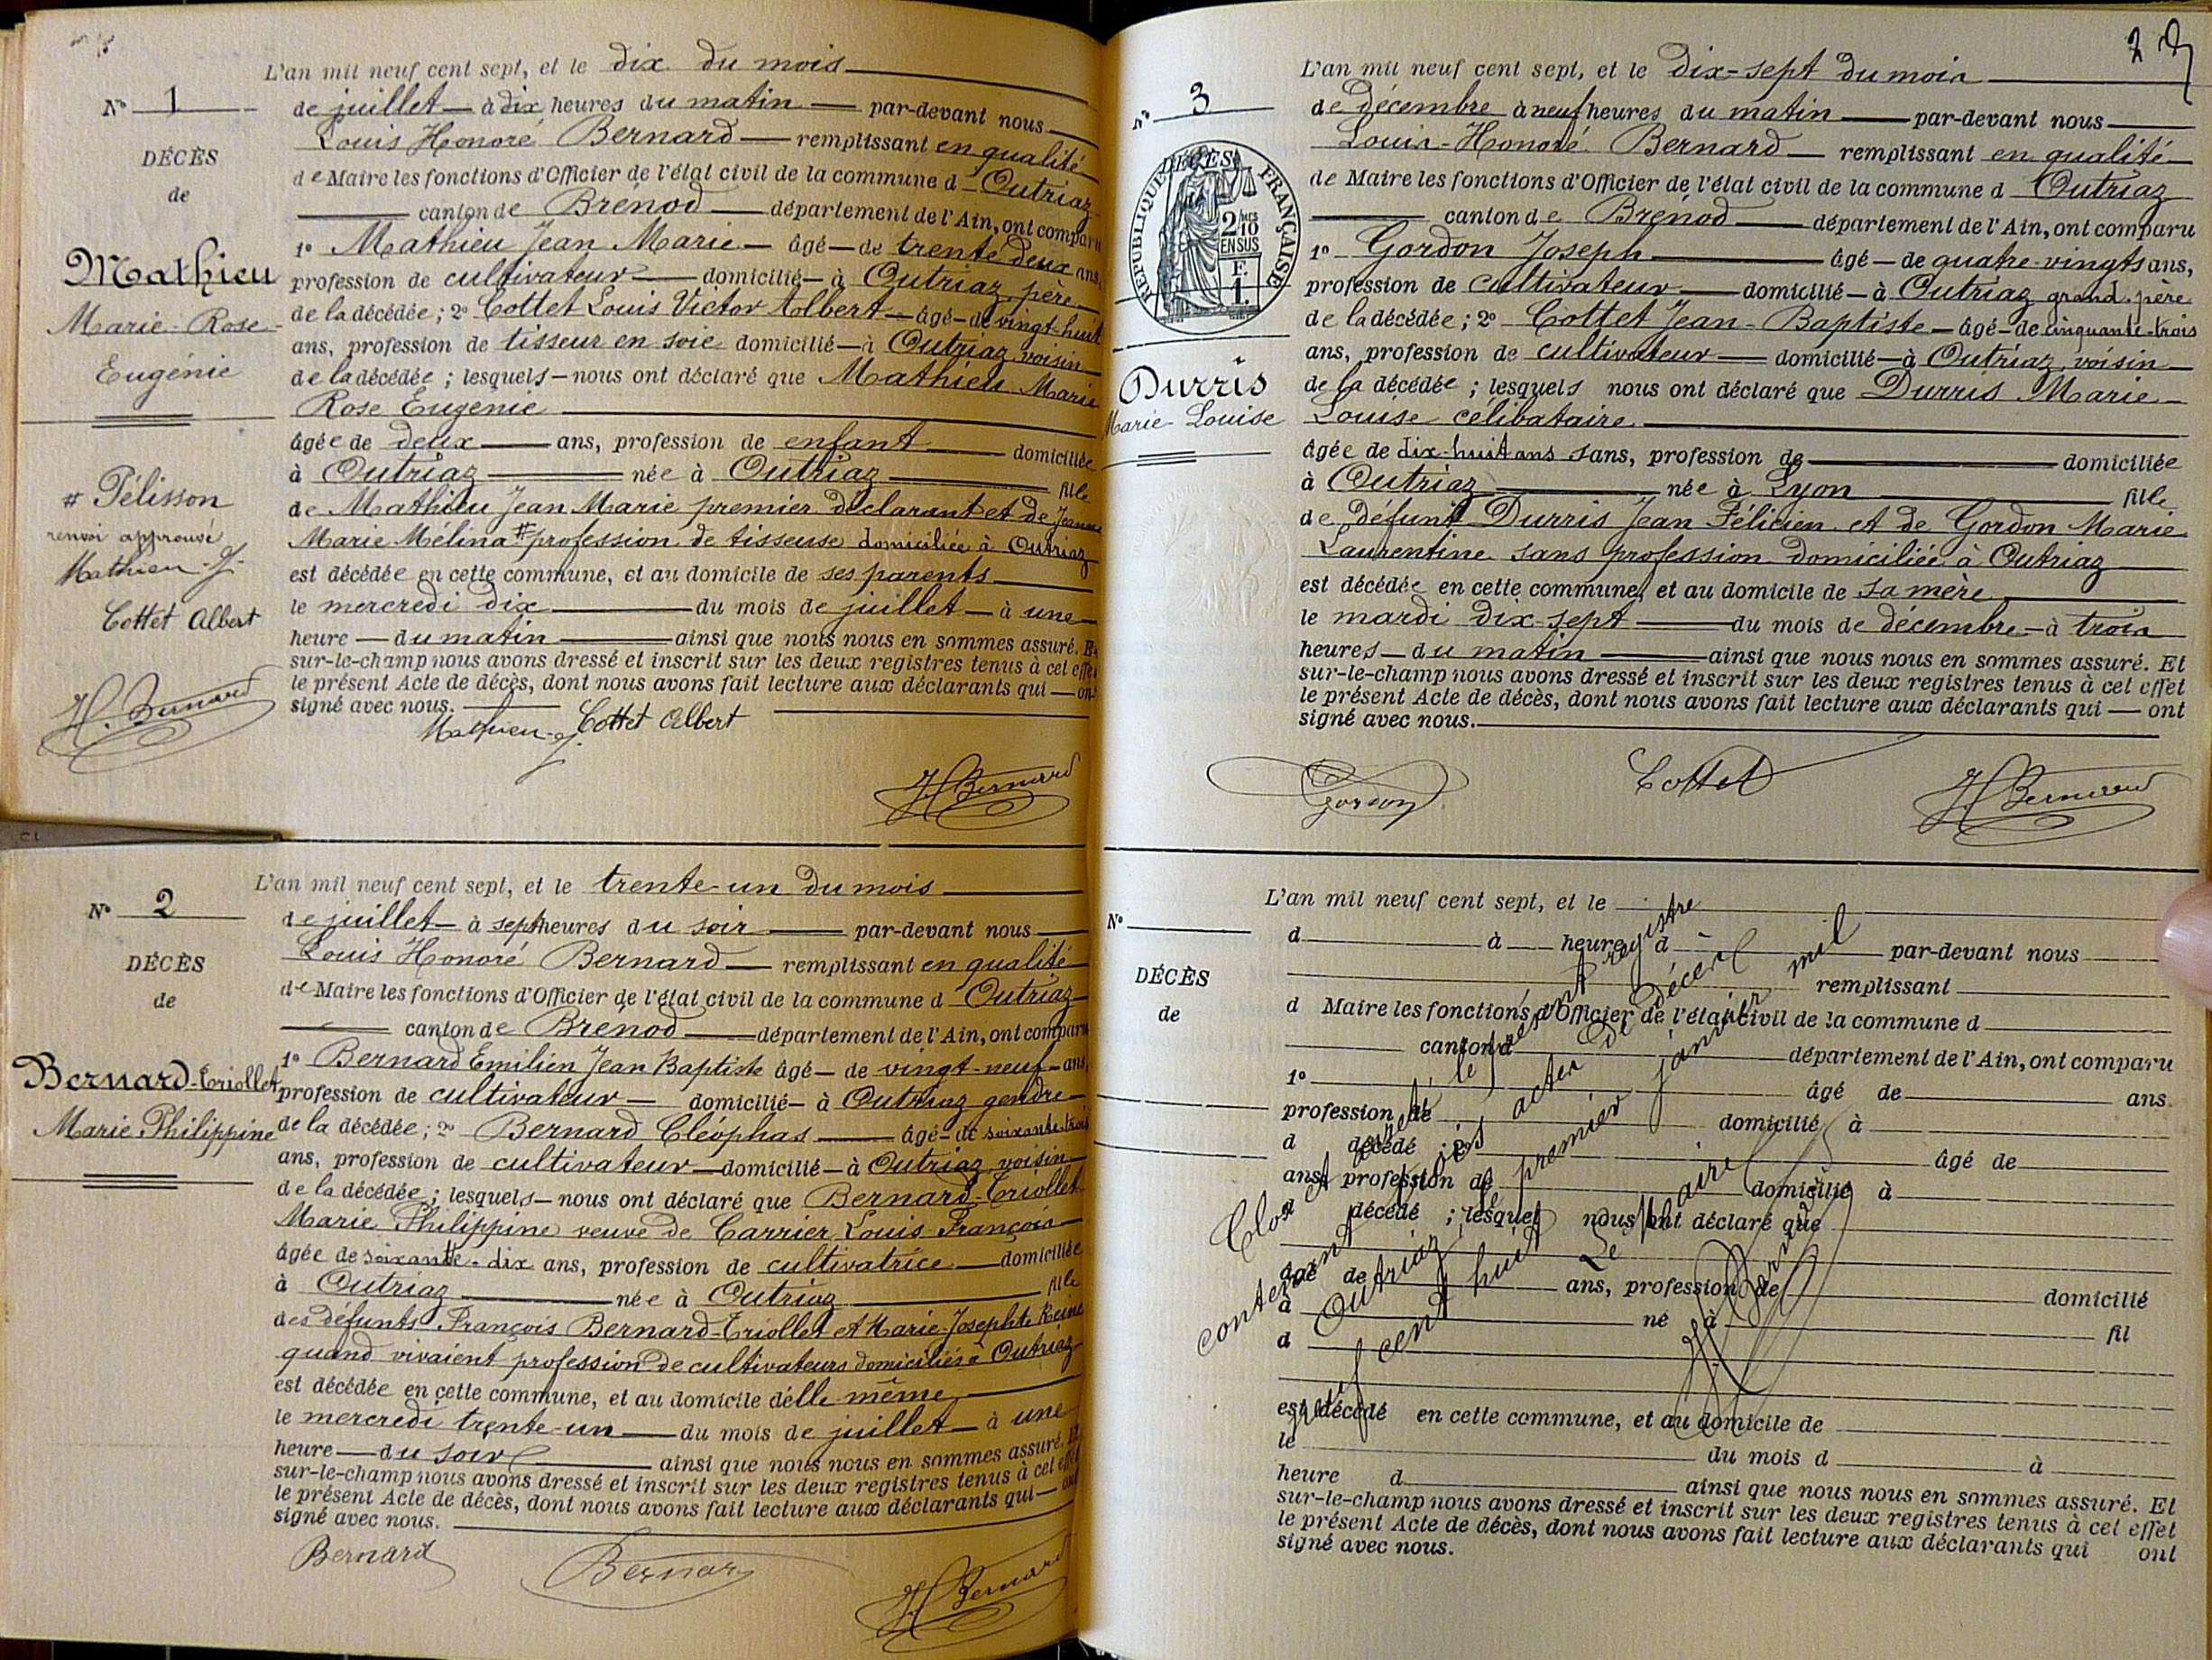 L'an mil neuf cent sept, et le dix du mois
N° 1
de juillet à dix heures du matin par-devant nous
Louis Honoré Bernard remplissant en qualité
DÉCÈS
de Maire les fonctions d'Officier de l'état civil de la commune d Outriaz
de
canton de Brénod département de l'Ain, ont comparu
1° Mathieu Jean Marie âgé de trente deux ans,
Mathieu
profession de cultivateur domicilié à Outriaz père
Marie-Rose-
de la décédée; 2° Cottet Louis Victor Albert âgé de vingt-huit
ans, profession de tisseur en soie domicilié à Outriaz voisin
Eugénie
de la décédée; lesquels nous ont déclaré que Mathieu Marie
Rose Eugénie
âgée de deux ans, profession de enfant domiciliée
à Outriaz née à Outriaz fille
# Pélisson
de Mathieu Jean Marie premier déclarant et de Jeanne
renvoi approuvé
Marie Mélina # profession de tisseuse domiciliée à Outriaz
Mathieu J.
est décédée en cette commune, et au domicile de ses parents
Cottet Albert
le mercredi dix du mois de juillet à une
heure du matin ainsi que nous nous en sommes assuré. Et
sur-le-champ nous avons dressé et inscrit sur les deux registres tenus à cet effet
le présent Acte de décès, dont nous avons fait lecture aux déclarants qui ont
H. Bernard
signé avec nous.
Mathieu J. Cottet Albert
H Bernard
L'an mil neuf cent sept, et le trente-un du mois
N° 2
de juillet à sept heures du soir par-devant nous
Louis Honoré Bernard remplissant en qualité
DÉCÈS
de Maire les fonctions d'Officier de l'état civil de la commune d Outriaz
de
canton de Brénod département de l'Ain, ont comparu
1° Bernard Emilien Jean Baptiste âgé de vingt-neuf ans,
Bernard-Triollet
profession de cultivateur domicilié à Outriaz gendre
Marie Philippine
de la décédée; 2° Bernard Cléophas âgé de soixante-trois
ans, profession de cultivateur domicilié à Outriaz voisin
de la décédée; lesquels nous ont déclaré que Bernard-Triollet
Marie Philippine veuve de Carrier Louis François
âgée de soixante-dix ans, profession de cultivatrice domiciliée
à Outriaz née à Outriaz fille
des défunts François Bernard-Triollet et Marie-Josephte Reine
quand vivaient profession de cultivateurs domiciliés à Outriaz
est décédée en cette commune, et au domicile d'elle même
le mercredi trente-un du mois de juillet à une
heure du soir ainsi que nous nous en sommes assuré. Et
sur-le-champ nous avons dressé et inscrit sur les deux registres tenus à cet effet
le présent Acte de décès, dont nous avons fait lecture aux déclarants qui ont
signé avec nous.
Bernard Bernard
H Bernard
L'an mil neuf cent sept, et le dix-sept du mois
N° 3
de décembre à neuf heures du matin par-devant nous
Louis-Honoré Bernard remplissant en qualité
DÉCÈS
de
RÉPUBLIQUE FRANÇAISE
2/10 EN SUS
F. 1.
de Maire les fonctions d'Officier de l'état civil de la commune d Outriaz
canton de Brénod département de l'Ain, ont comparu
1° Gordon Joseph âgé de quatre-vingts ans,
profession de cultivateur domicilié à Outriaz grand-père
de la décédée; 2° Cottet Jean-Baptiste âgé de cinquante-trois
ans, profession de cultivateur domicilié à Outriaz voisin
Durris
de la décédée; lesquels nous ont déclaré que Durris Marie-
Marie-Louise
Louise célibataire
âgée de dix-huit ans sans, profession de domiciliée
à Outriaz née à Lyon fille
de défunt Durris Jean Félicien et de Gordon Marie
Laurentine sans profession domiciliée à Outriaz
est décédée en cette commune, et au domicile de sa mère
le mardi dix-sept du mois de décembre à trois
heures du matin ainsi que nous nous en sommes assuré. Et
sur-le-champ nous avons dressé et inscrit sur les deux registres tenus à cet effet
le présent Acte de décès, dont nous avons fait lecture aux déclarants qui ont
signé avec nous.
Gordon Cottet H Bernard
L'an mil neuf cent sept, et le
N°
d à heure d par-devant nous
remplissant
DÉCÈS
d Maire les fonctions d'Officier de l'état civil de la commune d
de
canton d département de l'Ain, ont comparu
1° âgé de ans
profession de domicilié à
d décédé; 2° âgé de
ans, profession de domicilié à
d décédé; lesquel nous ont déclaré que
âgé de ans, profession de domicilié
à né à fil
d
est décédé en cette commune, et au domicile de
le du mois d à
heure d ainsi que nous nous en sommes assuré. Et
sur-le-champ nous avons dressé et inscrit sur les deux registres tenus à cet effet
le présent Acte de décès, dont nous avons fait lecture aux déclarants qui ont
signé avec nous.
Clos et arrêté le présent registre
contenant trois actes de décès
Outriaz, le premier janvier mil
neuf cent huit
Le Maire
H Bernard